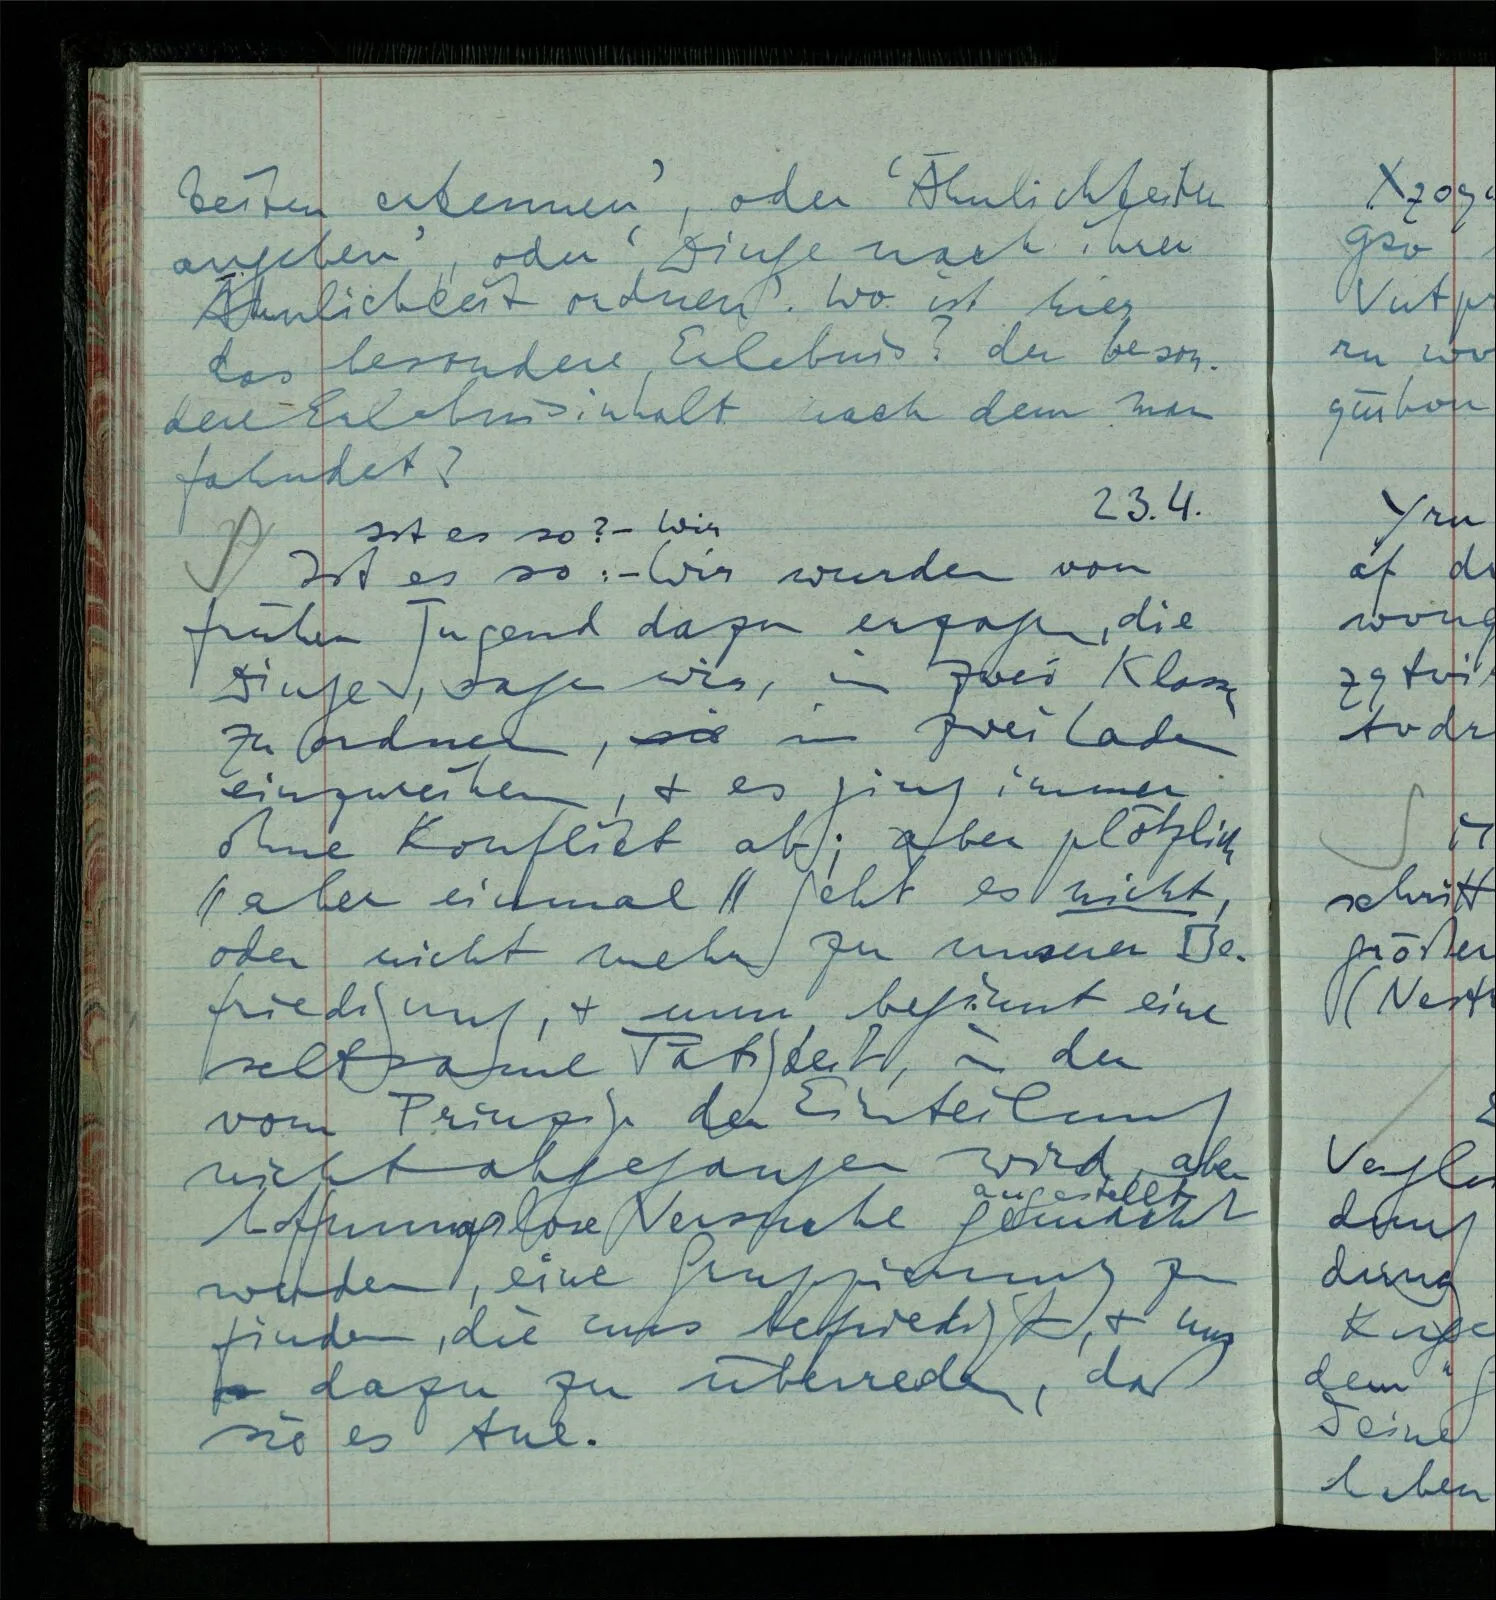 keiten erkennen', oder 'Ähnlichkeiten
angeben', oder 'Dinge nach ihrer
Ähnlichkeit ordnen'. Wo ist hier
das besondere Erlebnis? der beson-
dere Erlebnisinhalt nach dem man
fahndet?
23.4.
Ist es so? – Wir
Ist es so: – Wir wurden von
früher Jugend dazu erzogen, die
Dinge, sagen wir, in zwei Klassen
zu ordnen, sie in zwei Laden
einzureihen, + es ging immer
ohne Konflikt ab; aber plötzlich
// aber einmal // geht es nicht,
oder nicht mehr zu unserer Be-
friedigung, + nun beginnt eine
seltsame Tätigkeit, in der
vom Prinzip der Einteilung
nicht abgegangen wird, aber
angestellt
hoffnungslose Versuche gemacht
werden, eine Gruppierung zu
finden, die uns befriedigt, + uns
dazu zu überreden, daß
sie es tue.
Xzogv
gsv
rm wv
Yrn
schritt
größer
(Nest
Vergl
dung
dem "G
Deine
haben